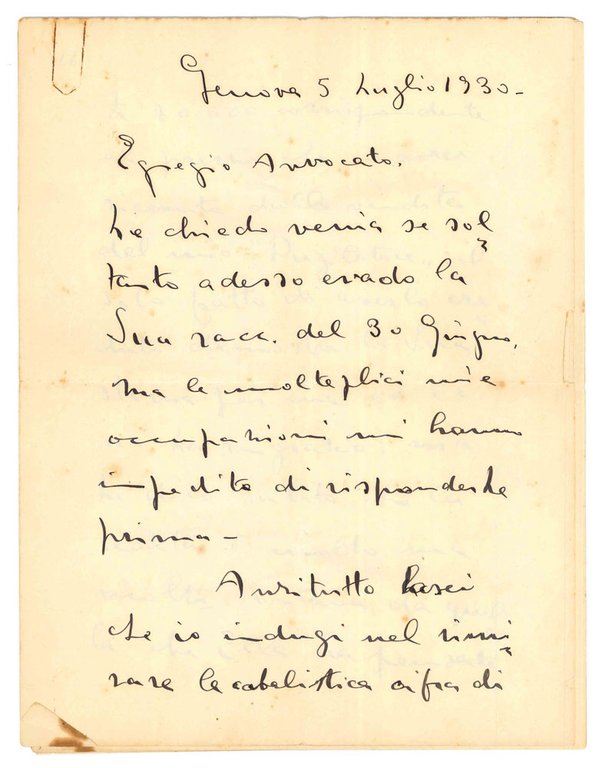 Genova 5 Luglio 1930-
Egregio Avvocato.
Le chiedo venia se sol
tanto adesso evado la
Sua racc. del 30 Giugno,
ma le molteplici mie
occupazioni mi hanno
impedito di risponderLe
prima-
Anzitutto lasci
che io indugi nel rimi
rare la cabalistica cifra di